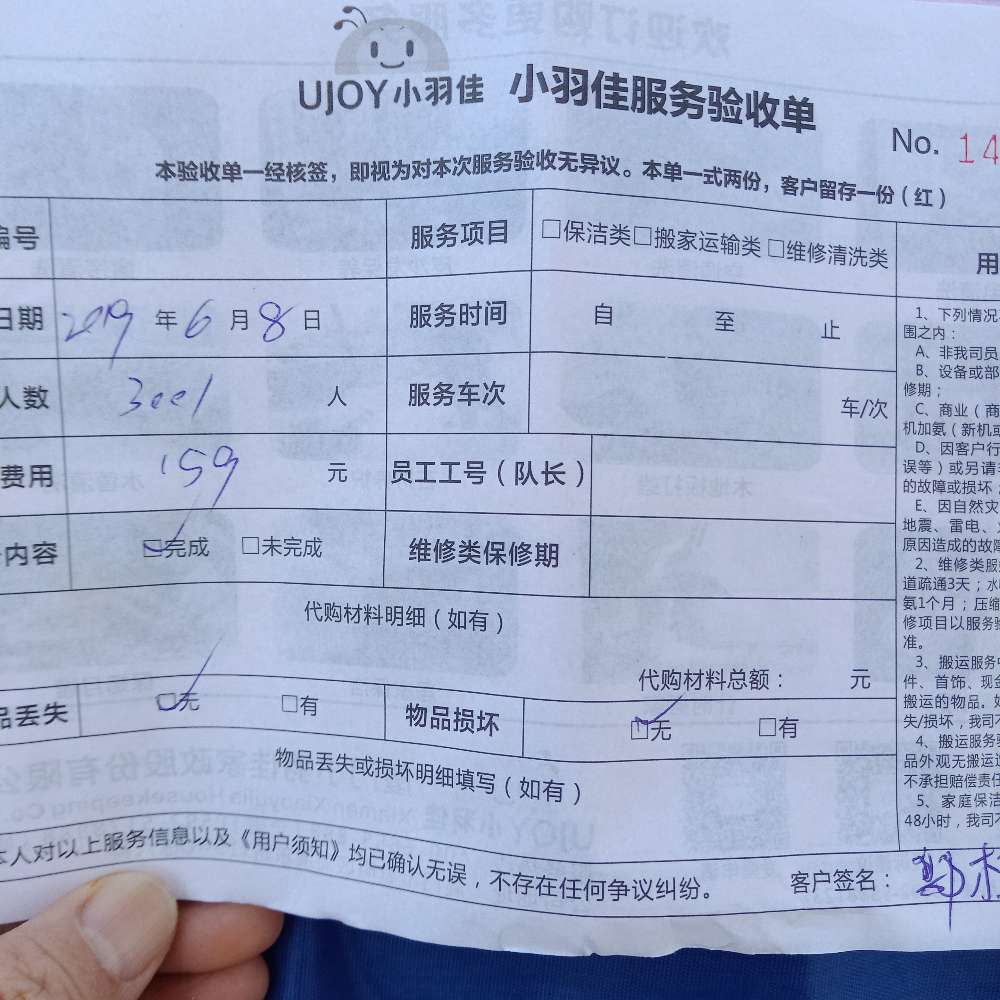 UJOY小羽佳 小羽佳服务验收单
No. 14
本验收单一经核签，即视为对本次服务验收无异议。本单一式两份，客户留存一份（红）
编号 服务项目 □保洁类□搬家运输类□维修清洗类
日期 2019 年 6 月 8 日 服务时间 自 至 止
人数 人 服务车次 车/次
费用 159 元 员工工号（队长）
内容 □完成 □未完成 维修类保修期
代购材料明细（如有）
代购材料总额： 元
品丢失 □无 □有 物品损坏 □无 □有
物品丢失或损坏明细填写（如有）
本人对以上服务信息以及《用户须知》均已确认无误，不存在任何争议纠纷。 客户签名：
用
1、下列情况
围之内：
A、非我司员
B、设备或部
修期；
C、商业（商
机加氨（新机或
D、因客户行
误等）或另请
的故障或损坏；
E、因自然灾
地震、雷电、
原因造成的故障
2、维修类服
道疏通3天；水
氨1个月；压缩
修项目以服务验
准。
3、搬运服务中
件、首饰、现金
搬运的物品。如
失/损坏，我司不
4、搬运服务验
品外观无搬运
不承担赔偿责任
5、家庭保洁
48小时，我司不